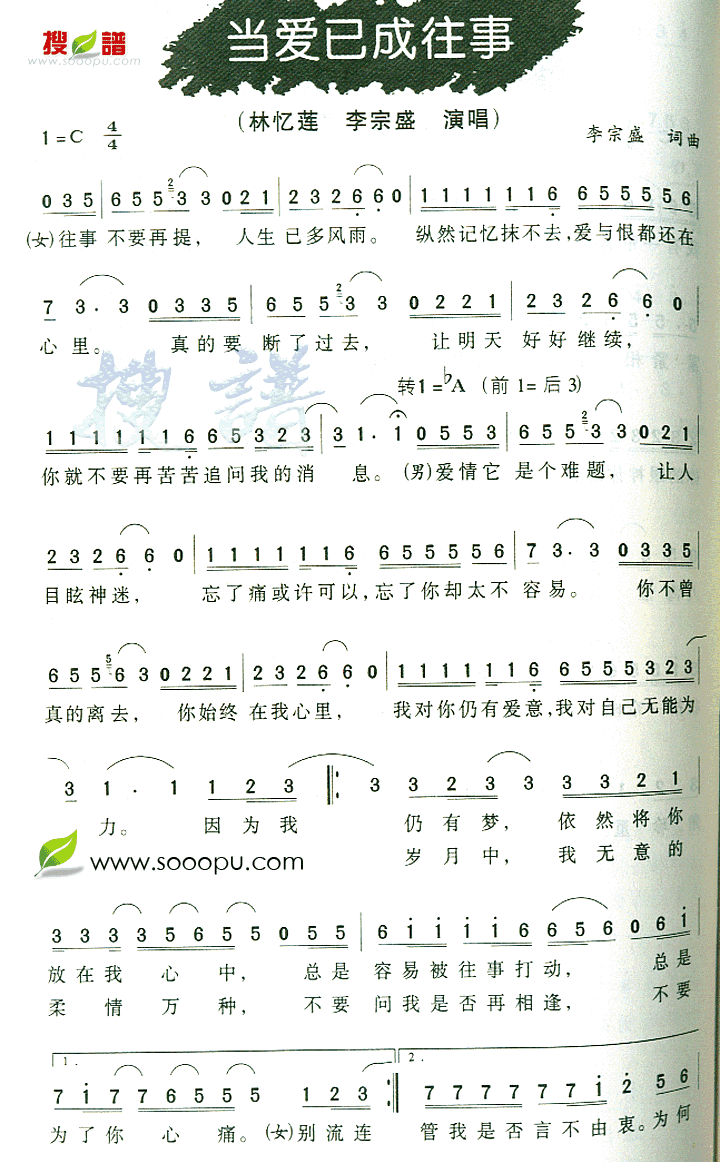 搜譜
www.sooopu.com
当爱已成往事
(林忆莲 李宗盛 演唱)
1=C 4/4
李宗盛 词曲
0 3 5 | 6 5 5 2 3 3 0 2 1 | 2 3 2 6 6 0 | 1 1 1 1 1 1 6 6 5 5 5 5 6
(女)往事 不要再提, 人生 已多风雨。 纵然记忆抹不去,爱与恨都还在
7 3 · 3 0 3 3 5 | 6 5 5 2 3 3 0 2 2 1 | 2 3 2 6 6 0
心里。 真的要 断了过去, 让明天 好好继续,
转1=♭A (前1=后3)
1 1 1 1 1 1 6 6 5 3 2 3 | 3 1 · 1 0 5 5 3 | 6 5 5 2 3 3 0 2 1
你就不要再苦苦追问我的消 息。 (男)爱情它 是个难题, 让人
2 3 2 6 6 0 | 1 1 1 1 1 1 6 6 5 5 5 5 6 | 7 3 · 3 0 3 3 5
目眩神迷, 忘了痛或许可以,忘了你却太不 容易。 你不曾
6 5 5 5 6 3 0 2 2 1 | 2 3 2 6 6 0 | 1 1 1 1 1 1 6 6 5 5 5 3 2 3
真的离去, 你始终 在我心里, 我对你仍有爱意,我对自己无能为
3 1 · 1 1 2 3 :‖: 3 3 2 3 3 3 3 2 1
力。 因为我 仍有梦, 依然将你
岁月中, 我无意的
www.sooopu.com
3 3 3 3 5 6 5 5 0 5 5 | 6 i i i i 6 6 5 6 5 0 6 i
放在我 心中, 总是 容易被往事打动, 总是
柔情万种, 不要 问我是否再相逢, 不要
1.
2.
7 i 7 7 6 5 5 5 1 2 3 :‖ 7 7 7 7 7 7 i 2 5 6
为了你 心痛。(女)别流连 管我是否言不由衷。为何